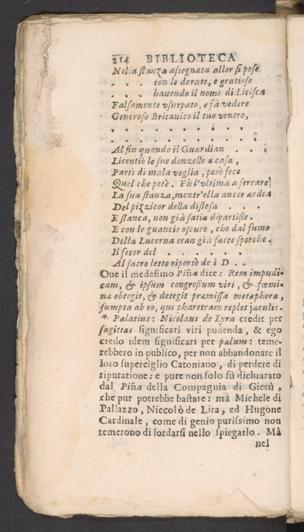 214 BIBLIOTECA
Nella stanza assegnata allor si pose
. . . con le dorate, e gratiose
. . . hauendo il nomo di Licisca
Falsamente vsurpato, e fà vedere
Generoso Britanico il tuo ventro,
. . . . . . . . .
. . . . . . . . .
Al fin quando il Guardian . .
Licentiò le sue donzelle a casa,
Partì di mala voglia, però fece
Quel che potè. Fù l'vltima a serrare
La sua stanza, mentr'ella ancor arde
Del pizzicor della distesa . . .
E stanca, non già satia dipartisse.
E con le guancie oscuro, che dal fumo
Della Lucerna eran già fatte sporche.
Il fetor del . . . . . .
Al sacro letto riportò de i D . .
Oue il medesimo Piña dice: Rem impudi-
cam, & ipsum congressum viri, & fœmi-
na obtegit, & detegit præmissa metaphora,
sumpta ab eo, qui pharetram replet jaculis.
* Palatius: Nicolaus de Lyra credit per
sagittas significari viri pudenda, & ego
credo idem significari per palum: teme-
rebbero in publico, per non abbandonare il
loro superciglio Catoniano, di perdere di
riputatione: e pure non solo fù dichiarato
dal Piña della Compagnia di Giesù,
che pur potrebbe bastare: mà Michele di
Pallazzo, Niccolò de Lira, ed Hugone
Cardinale, come di genio purissimo non
temerono di lordarsi nello spiegarlo. Mà
nel